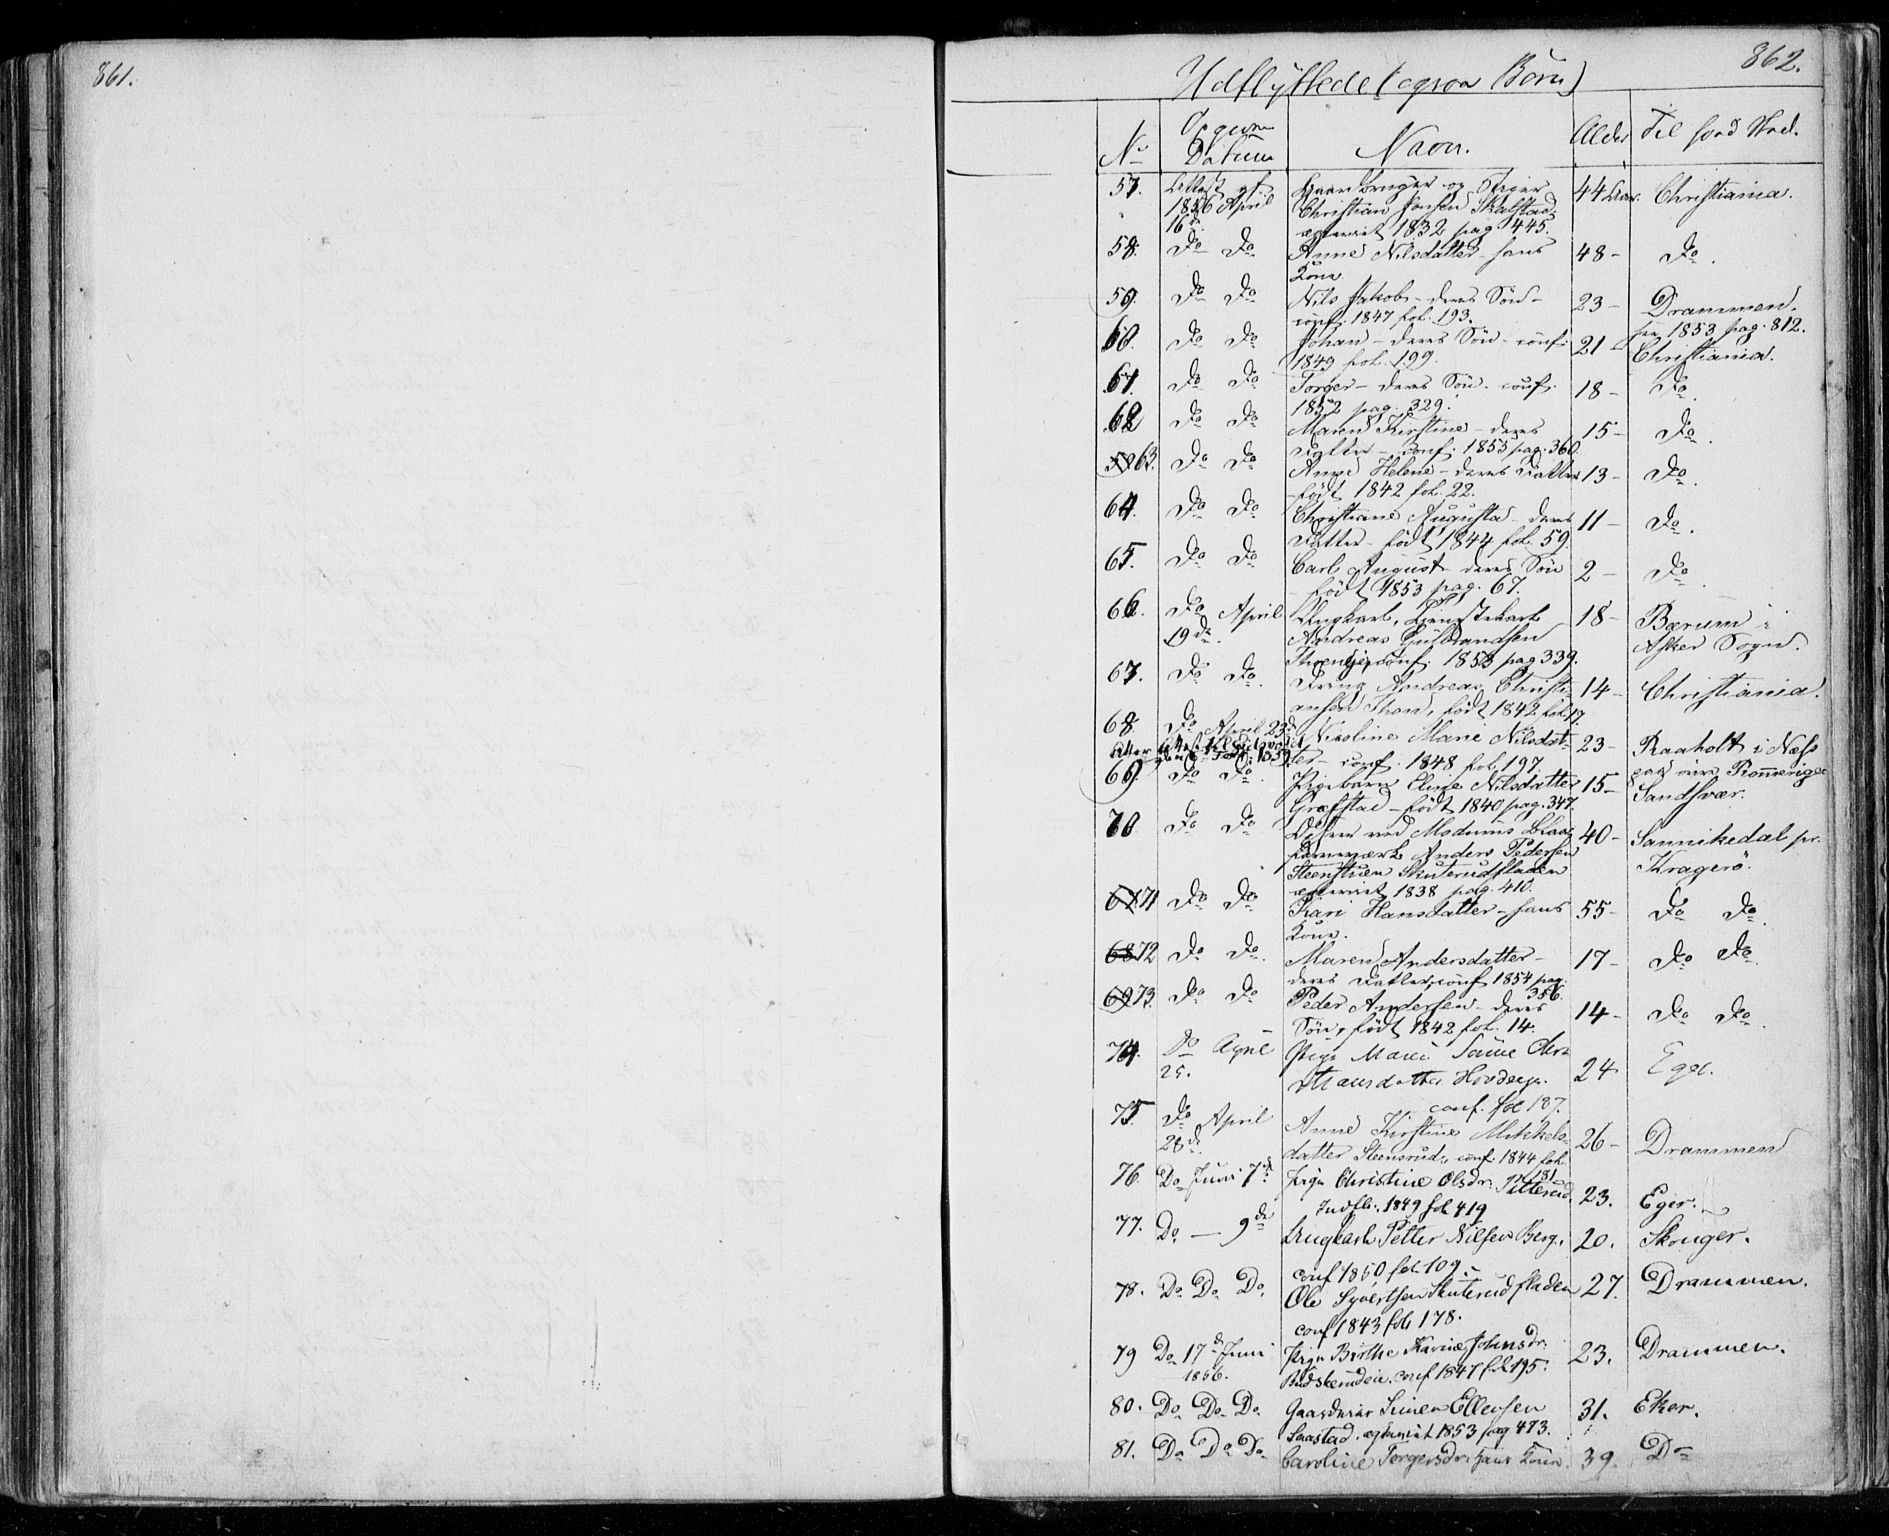 861.
862.
Udflyttede (ogsaa Børn)
No Datum Navn. Alder Til hvad Sted.
57. Attest af Gaardbruger og
1856 April Christian Jonsen Skalstad 44 Aar. Christiania.
16de egteviet 1832 pag 445.
58. Do Do Anne Nilsdatter hans 48 - Do.
Kone.
59. Do Do Nils Jakob - deres Søn - 23 - Drammen.
conf. 1847 fol. 193. 1853 pag. 812.
60. Do Do Johan - deres Søn - conf. 21 - Christiania.
1849 fol. 199.
61. Do Do Torger - deres Søn - conf. 18 - Do.
1852 pag. 329.
62 Do Do Maren Kirstine - deres 15 - Do.
Datter - conf. 1855 pag. 360
63. Do Do Anne Helene - deres Datter 13 - Do.
født 1842 fol. 22.
64. Do Do Christiane Augusta deres 11 - Do.
Datter - født 1844 fol. 59.
65. Do Do Carl August deres Søn 2 - Do.
født 1853 pag. 67.
66. Do April Ungkarl, Tjenestekarl 18 - Bærum i
19de. Andreas Gulbrandsen Asker Sogn.
conf. 1853 pag 339.
67. Do Do. Dreng Andreas Christi- 14 - Christiania.
ansen Thon, født 1842 fol. 17.
68. Do April 23de Nicoline Marie Nilsdat- 23 - Raaholt i Næss
ter - conf. 1848 fol. 197. Romerige
69. Do Do. Pigebarn Eline Nilsdatter 15 - Sandsvær.
Græfstad - født 1840 pag. 347.
70. Do Do ved Modums Blaa- 40 - Sannikedal pr.
farveværk Anders Pedersen Kragerö.
Steenstuen Skuterudfladen
egteviet 1838 pag. 410.
71 Do Do Kari Hansdatter - hans 55 - Do Do.
Kone.
72 Do Do. Maren Andersdatter - 17 - Do Do
deres Datter, conf 1854 pag.
356.
73. Do Do Peder Andersen - deres 14 - Do Do.
Søn, født 1842 fol. 14.
74. Do April Pige Maren 24 Eger.
25.
conf. fol 187.
75. Do April Anne Kirstine Mikkels- 26 - Drammen
28de. datter Steensrud, conf. 1844 fol.
181
76. Do Juni 7de Pige Christine Olsdr. 23. Eger.
Indfl. 1849 fol 419
77. Do — 9de Ungkarl Petter Nilsen Berg. 20. Skouger.
conf 1850 fol. 109.
78. Do Do Do. Ole Syvertsen Skuterudfladen 27. Drammen.
conf 1843 fol 178.
79 Do 17de Juni Pige Birthe Karine Johnsdr. 23. Drammen.
1856. conf 1847 fol 195.
80. Do Do Do Simen Ellensen 31. Eker.
Saastad. egteviet 1853 pag 473.
81. Do Do Do. Caroline Torgersdr. hans Kone. 39. Do